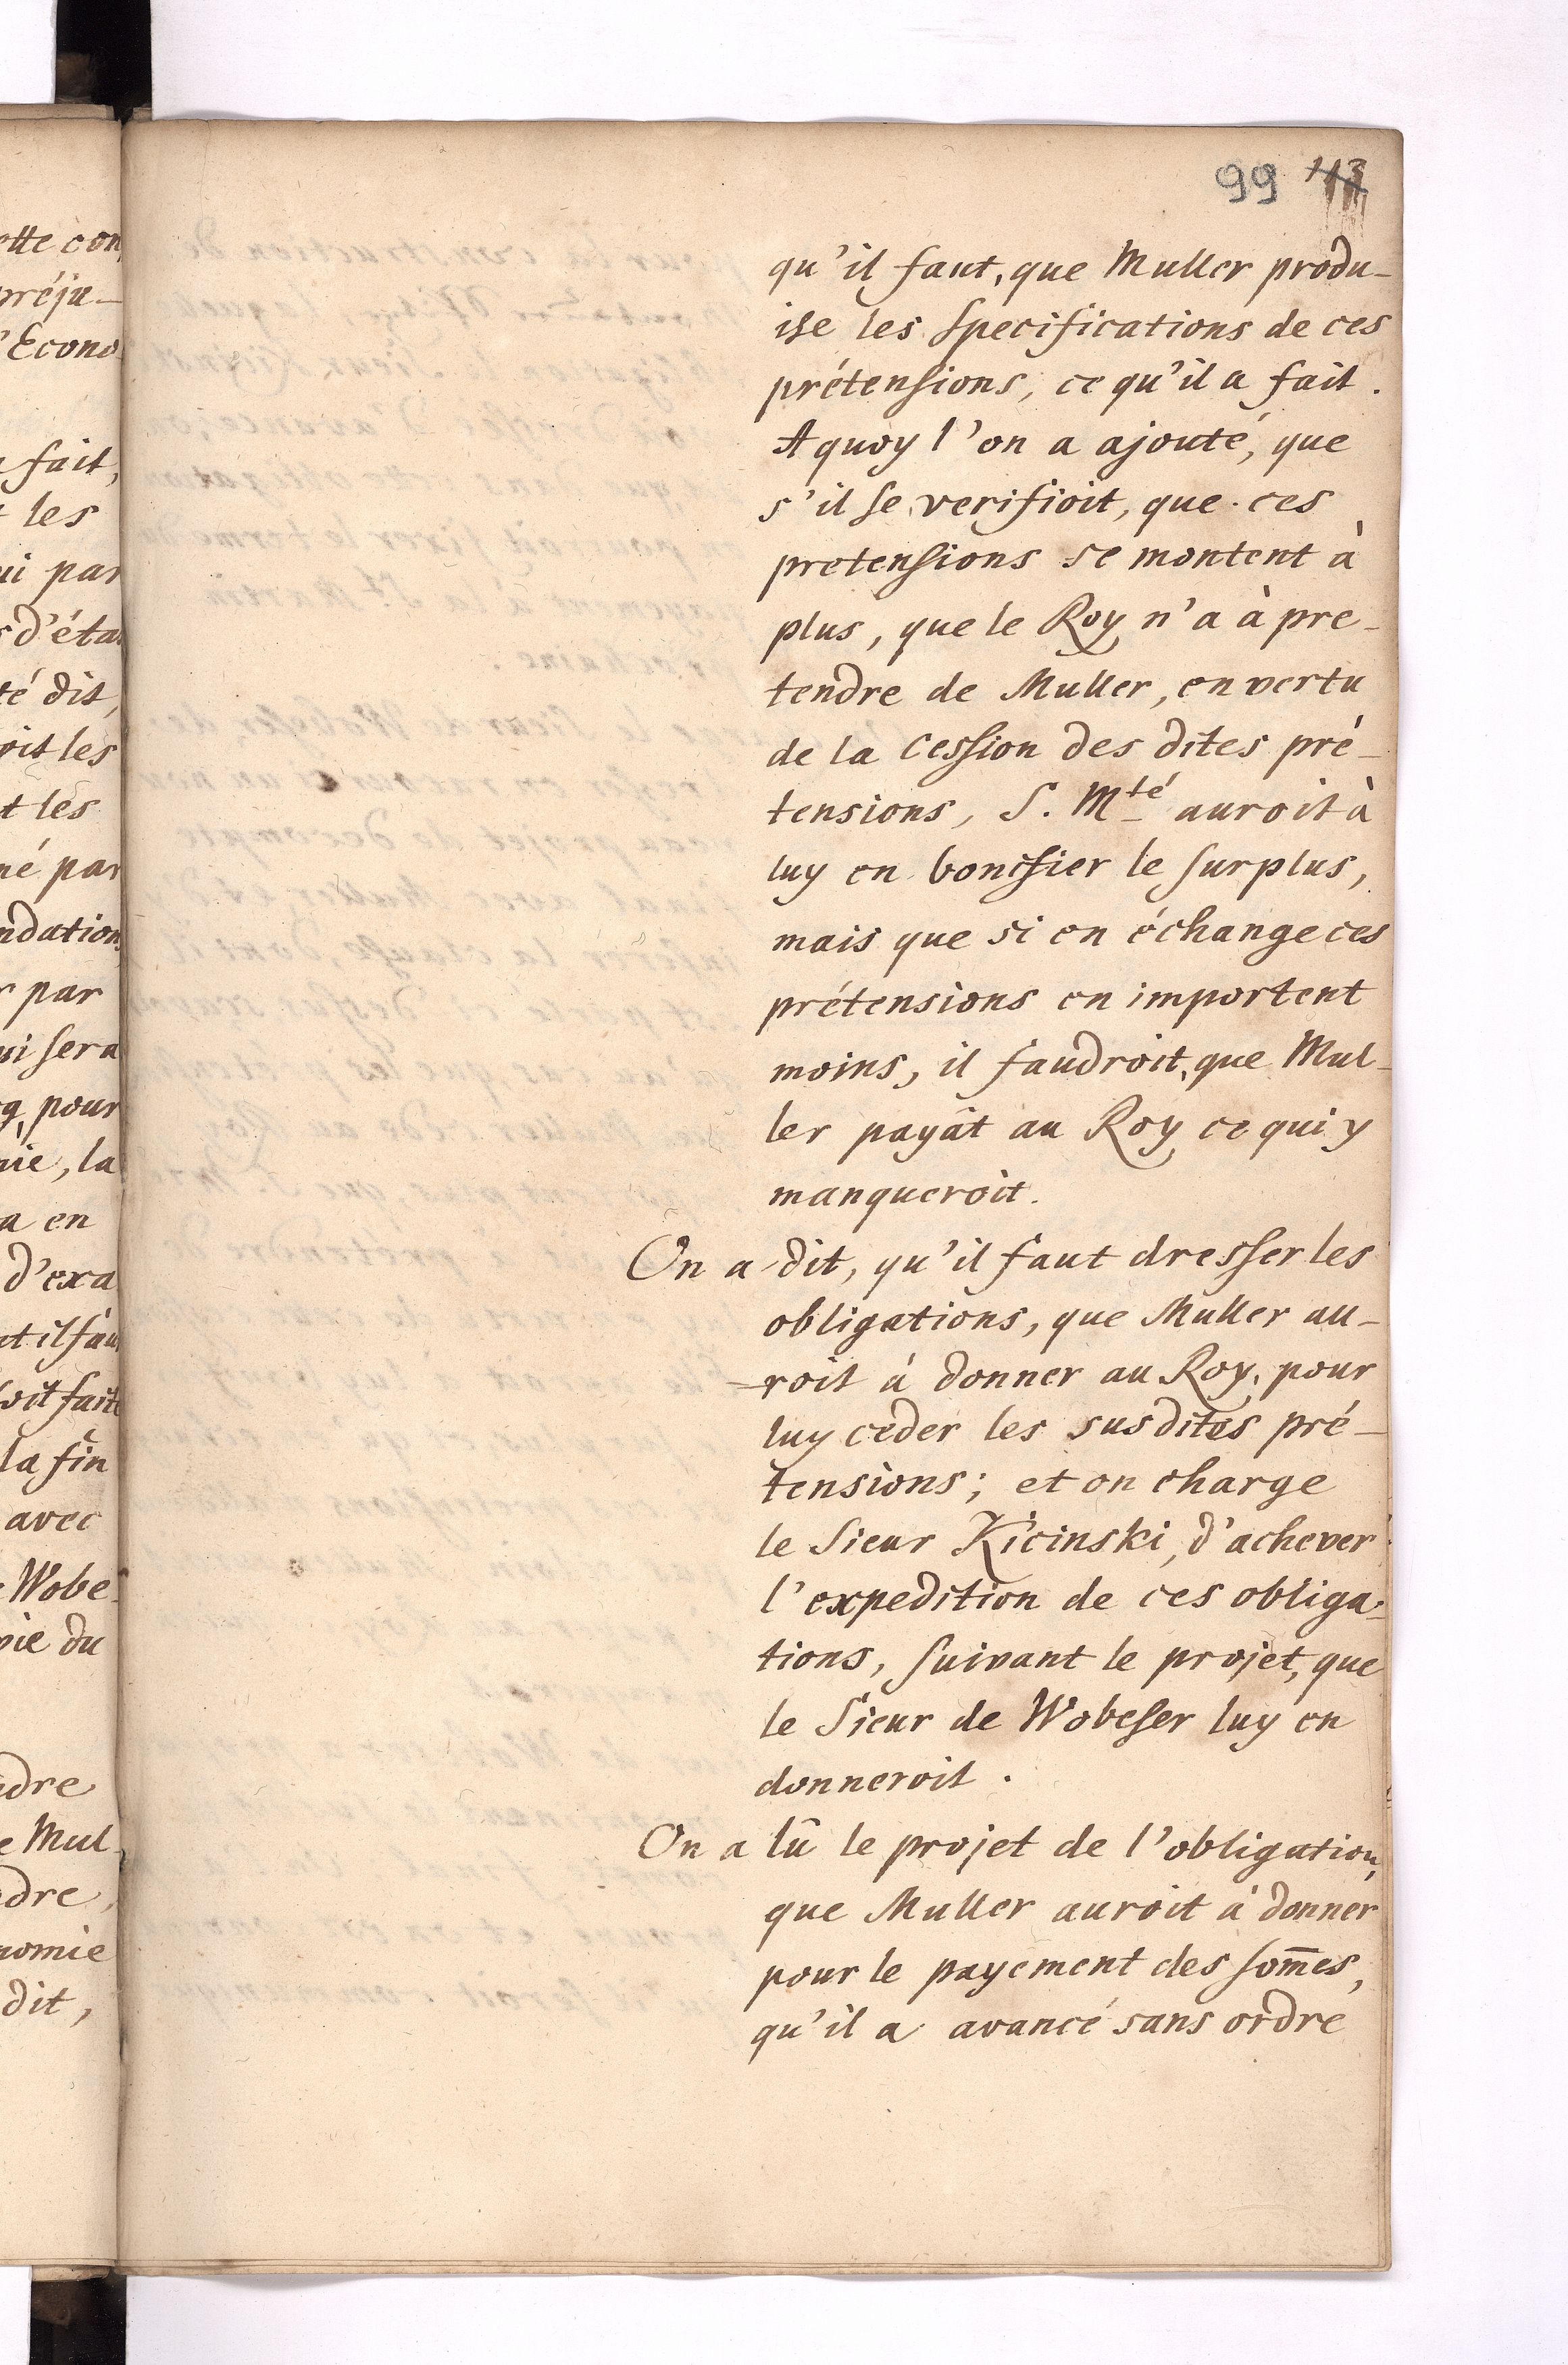 99 113
qu'il faut, que Muller produ-
ise les Specifications de ces
prétensions, ce qu'il a fait.
A quoy l'on a ajouté, que
s'il se verifioit, que ces
pretensions se montent à
plus, que le Roy n'a à pre-
tendre de Muller, en vertu
de la Cession des dites pré-
tensions, S. Mté auroit à
luy en bonifier le surplus,
mais que si en échange ces
prétensions en importent
moins, il faudroit, que Mul-
ler payât au Roy ce qui y
manqueroit.
On a dit, qu'il faut dresser les
obligations, que Muller au-
roit à donner au Roy, pour
luy céder les susdites pré-
tensions; et on charge
le Sieur Kicinski, d'achever
l'expedition de ces obliga-
tions, suivant le projet, que
le Sieur de Wobeser luy en
donneroit.
On a lû le projet de l'obligation,
que Muller auroit à donner
pour le payement des som̄es,
qu'il a avancé sans ordre
ette con
préju-
Econo
fait,
les
ui par
d'éta
té dit,
oit les
t les
né par
ndation
par
ui sera
pour
nie, la
a en
d'exa
et il fau
soit faite
la fin
avec
Wobe-
ie du
dre
e Mul-
dre,
nomie
dit,